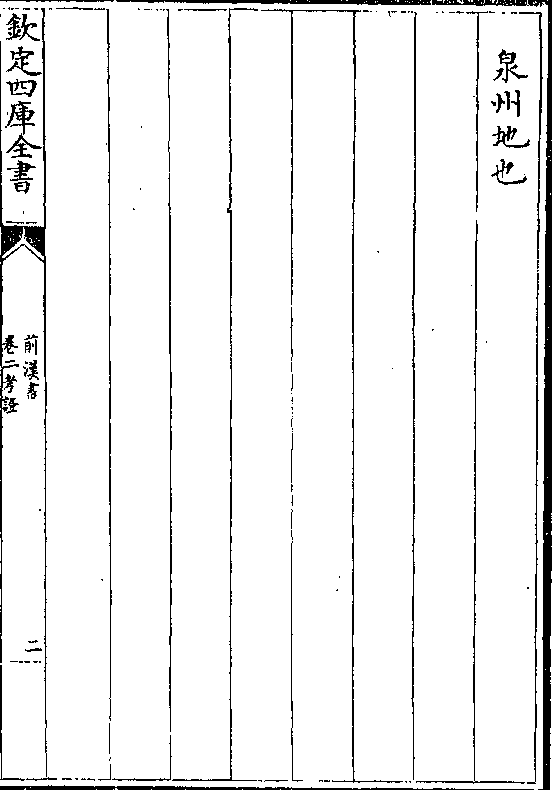 泉州地也
欽定四庫全書
前漢書
卷二考證
二